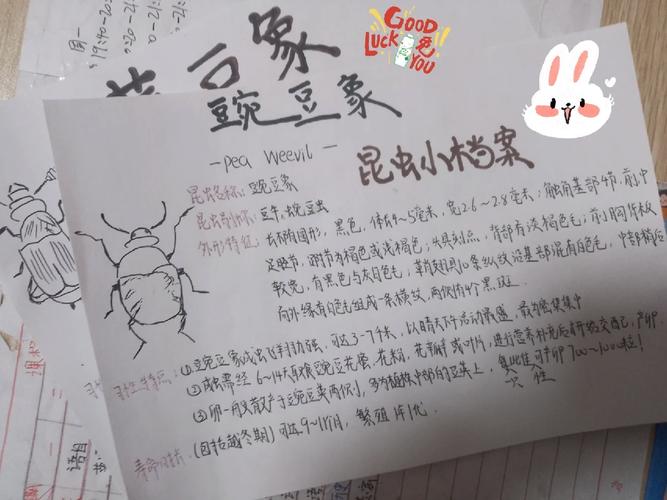 GOOD
LUCK
兔
YOU
豆象
豌豆象
-pea weevil-
昆虫小档案
昆虫名称: 豌豆象
昆虫别称: 豆牛、豌豆虫
外形特征: 长椭圆形, 黑色, 体长4~5毫米, 宽2.6~2.8毫米; 触角基部4节, 前中
足胫节、跗节为褐色或浅褐色; 头具刻点, 背部有淡褐色毛; 前胸背板
较宽, 有黑色与灰白色毛; 鞘翅具10条纵纹
向外缘有白色毛组成一条横纹, 两侧有4个黑斑.
习性特点: ①豌豆象成虫飞翔力强, 可达3~7千米, 以晴天下午活动最盛
②成虫需经6~14天取食豌豆花蜜、花粉、花瓣或叶片, 进行营养补充后开始交配、产卵.
③卵一般散产于豌豆荚两侧, 多为植株中部的豆荚上, 700~1000粒!
寿命: (包括越冬期) 可达9~11个月, 繁殖1年1代.
周一
19:40-20:
语目